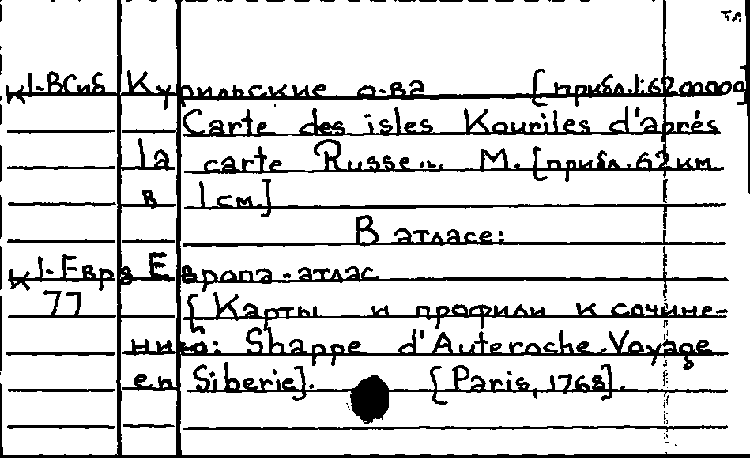 к1-ВСиб Курильские о-ва [прибл.1:6200000]
Carte des isles Kouriles d'aprés
la carte Russe... М. [прибл.62 км
в 1 см.]
В атласе:
к1-Евра Европа-атлас
77 [Карты и профили к сочине-
нию: Shappe d'Auteroche. Voyage
en Siberie]. [Paris, 1768].